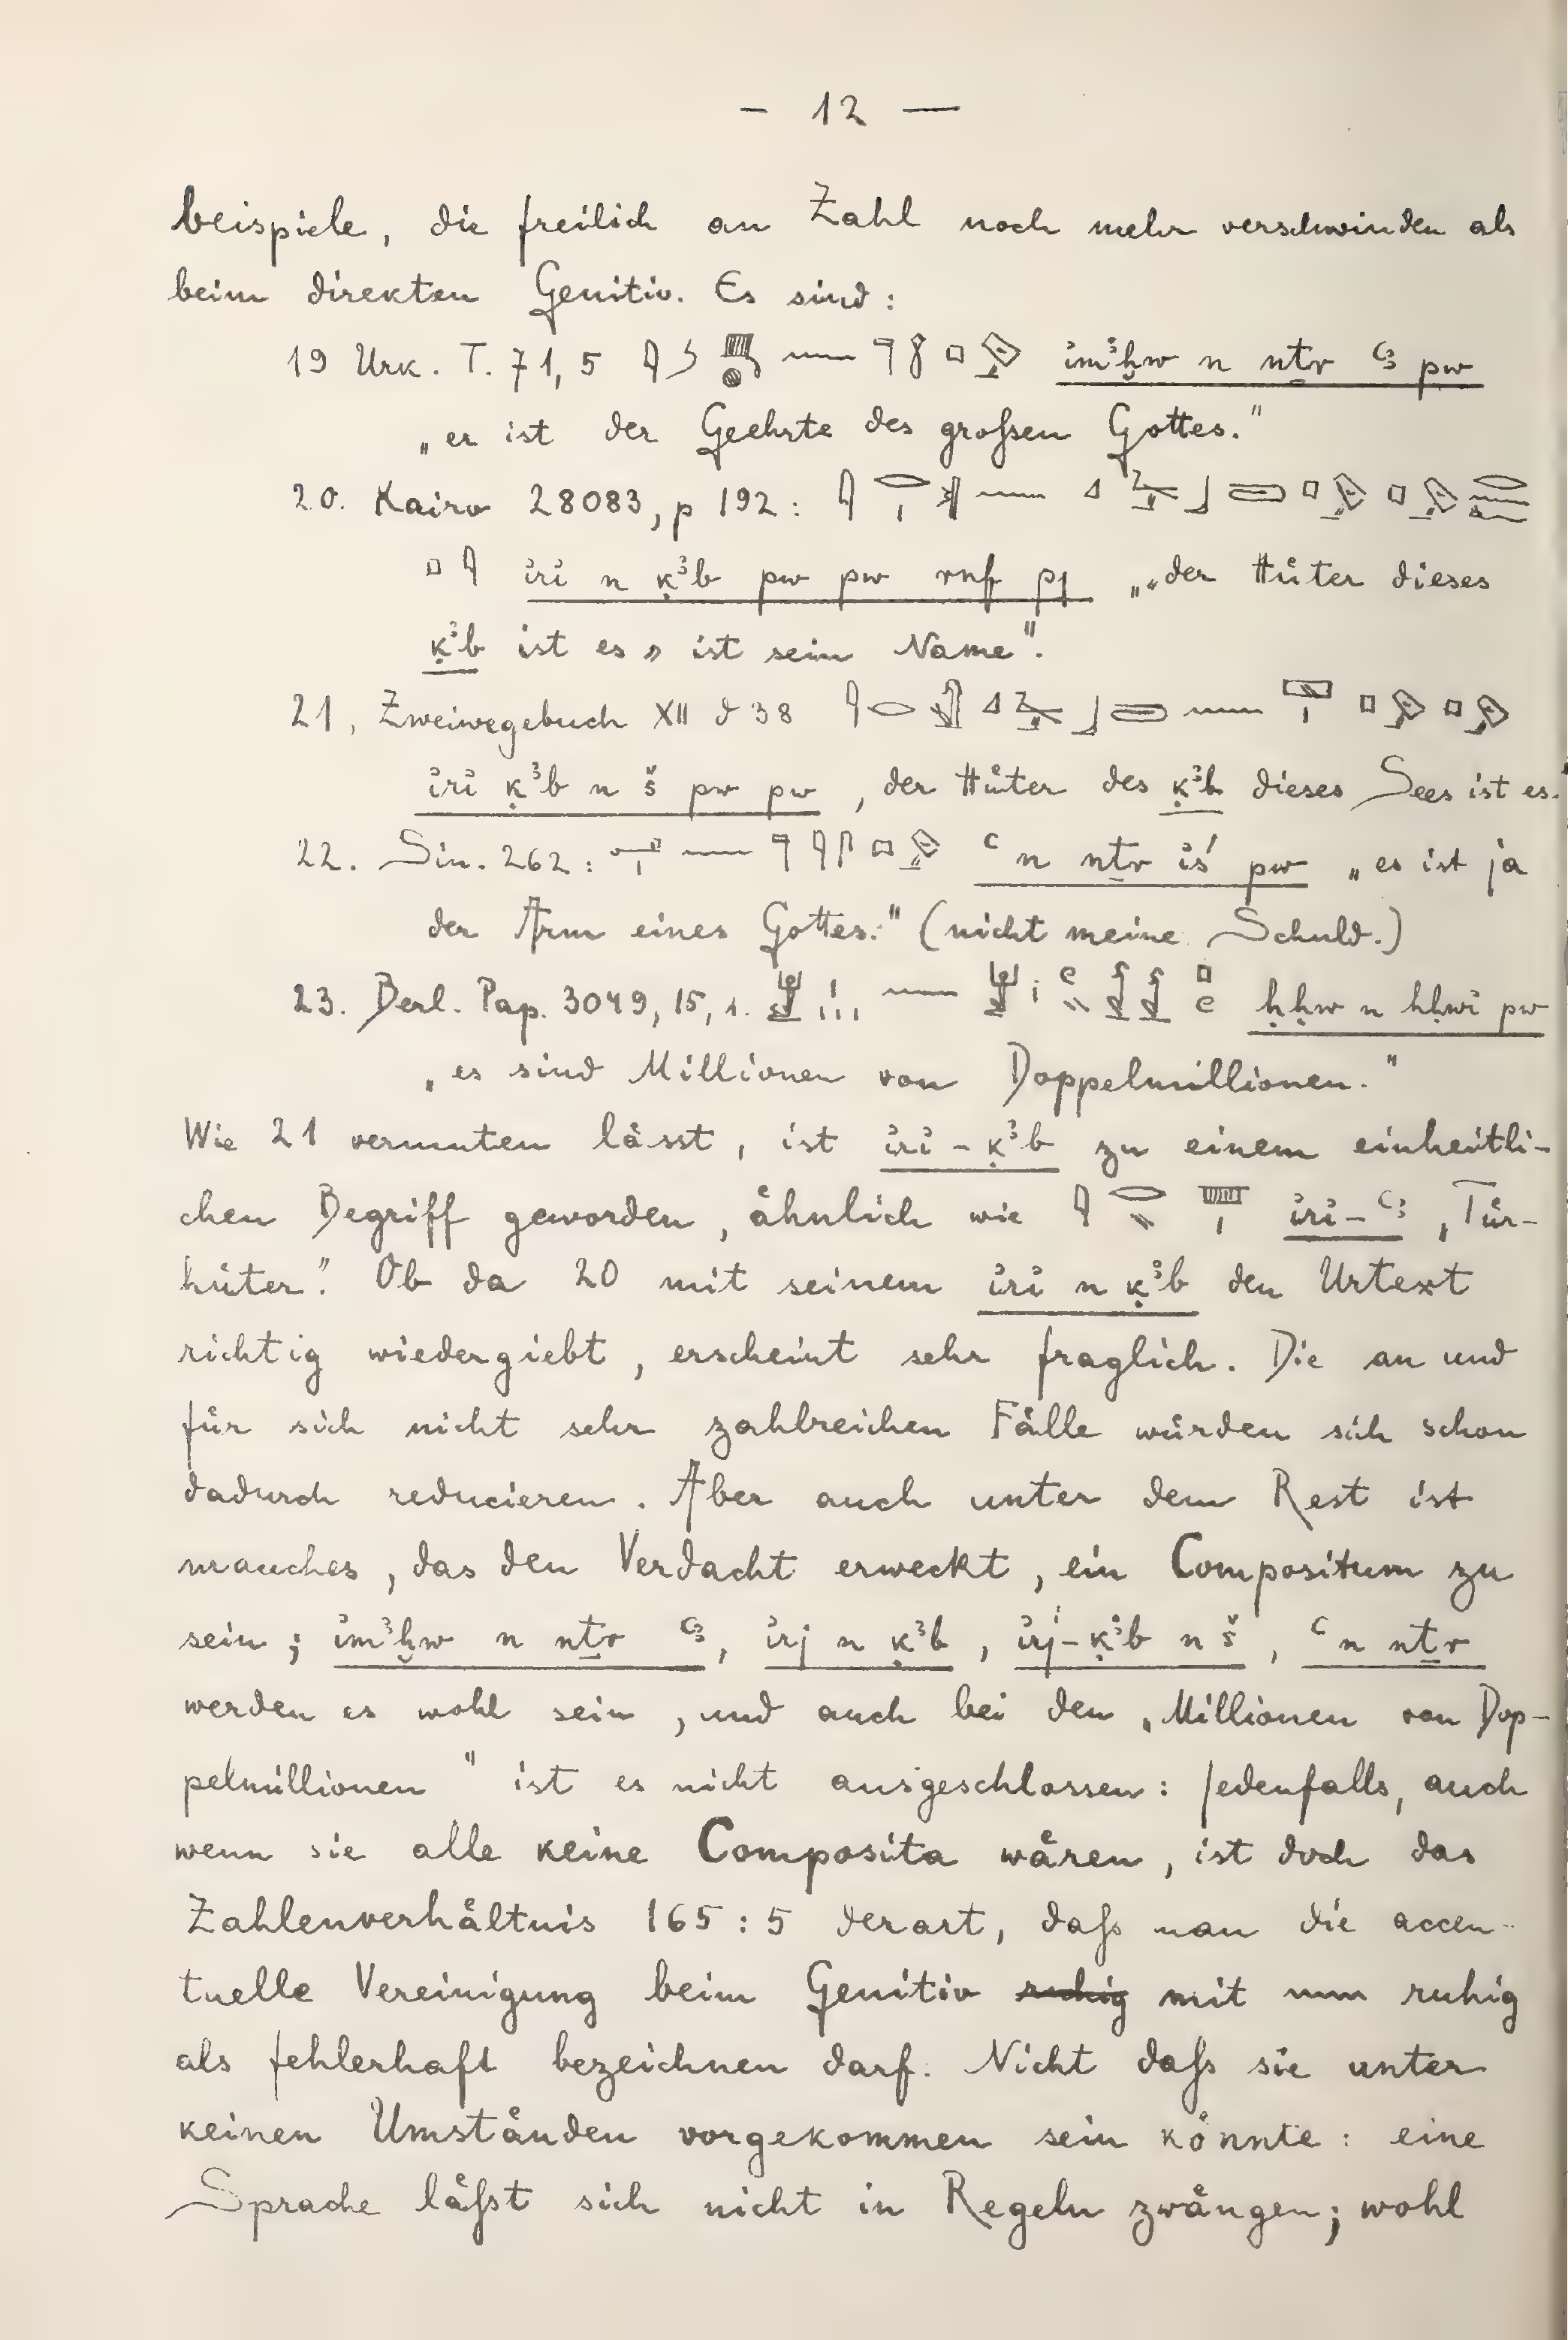 – 12 —
beispiele, die freilich an Zahl noch mehr verschwinden als
beim direkten Genitiv. Es sind:
19 Urk. T. 71, 5 im3ḫw n nṯr ꜥ3 pw
„er ist der Geehrte des großen Gottes."
20. Kairo 28083, p 192:
iri n ḳ3b pw pw rnf pj „„der Hüter dieses
ḳ3b ist es„ ist sein Name".
21, Zweiwegebuch XII d 38
iri ḳ3b n š pw pw , der Hüter des ḳ3b dieses Sees ist es.
22. Sin. 262: ꜥ n nṯr iś pw „es ist ja
der Arm eines Gottes." (nicht meine Schuld.)
23. Berl. Pap. 3049, 15, 1. ḥḥw n ḥḥwi pw
„es sind Millionen von Doppelmillionen."
Wie 21 vermuten lässt, ist iri - ḳ3b zu einem einheitli-
chen Begriff geworden, ähnlich wie iri - ꜥ3 „Tür-
hüter". Ob da 20 mit seinem iri n ḳ3b den Urtext
richtig wiedergiebt, erscheint sehr fraglich. Die an und
für sich nicht sehr zahlreichen Fälle würden sich schon
dadurch reducieren. Aber auch unter dem Rest ist
manches, das den Verdacht erweckt, ein Compositum zu
sein; im3ḫw n nṯr ꜥ3, irj n ḳ3b, irj-ḳ3b n š, ꜥ n nṯr
werden es wohl sein, und auch bei den „Millionen von Dop-
pelmillionen" ist es nicht ausgeschlossen: Jedenfalls, auch
wenn sie alle keine Composita wären, ist doch das
Zahlenverhältnis 165 : 5 derart, daß man die accen-
tuelle Vereinigung beim Genitiv ruhig mit nun ruhig
als fehlerhaft bezeichnen darf. Nicht daß sie unter
keinen Umständen vorgekommen sein könnte: eine
Sprache läßt sich nicht in Regeln zwängen; wohl